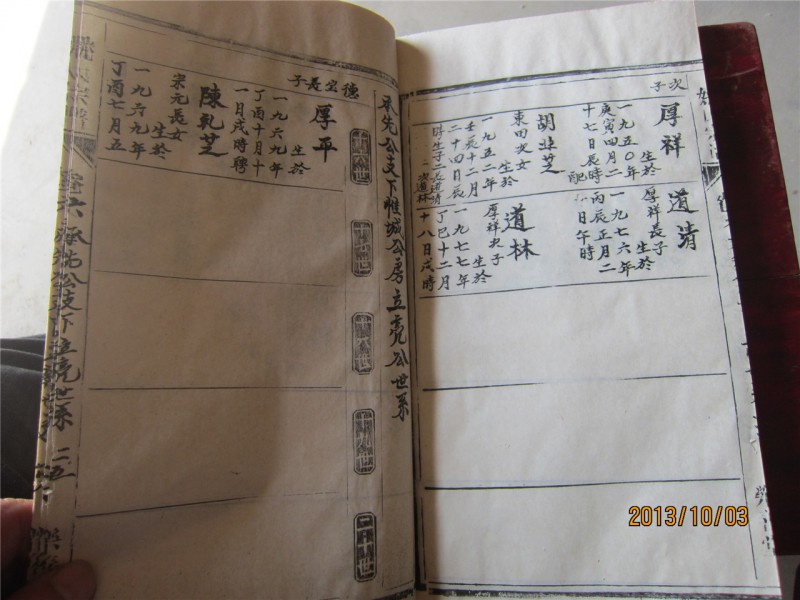 次子
厚祥
生於
一九五〇年
庚寅四月二
十七日辰時
配
胡业芝
東田次女
生於
一九五二年
壬辰十二月
二十四日辰
時生子二長道清
次道林
道清
厚祥長子
生於
一九七六年
丙辰正月二
日午時
道林
厚祥次子
生於
一九七七年
丁巳十二月
十八日戌時
承先公支下惟城公房立亮公世系
十六世
十七世
十八世
十九世
二十世
德宏長子
厚平
生於
一九六九年
丁酉十月十
一月戌時聘
陳乾芝
宗元長女
生於
一九六九年
丁酉七月五
2013/10/03